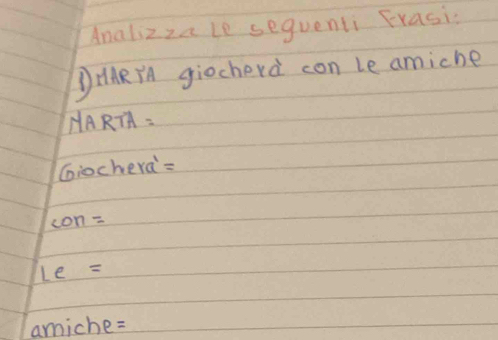 Analizza le seguenti frasi:
1) MARTA giocherà con le amiche
MARTA=
Giocherà=
con=
Le =
amiche=